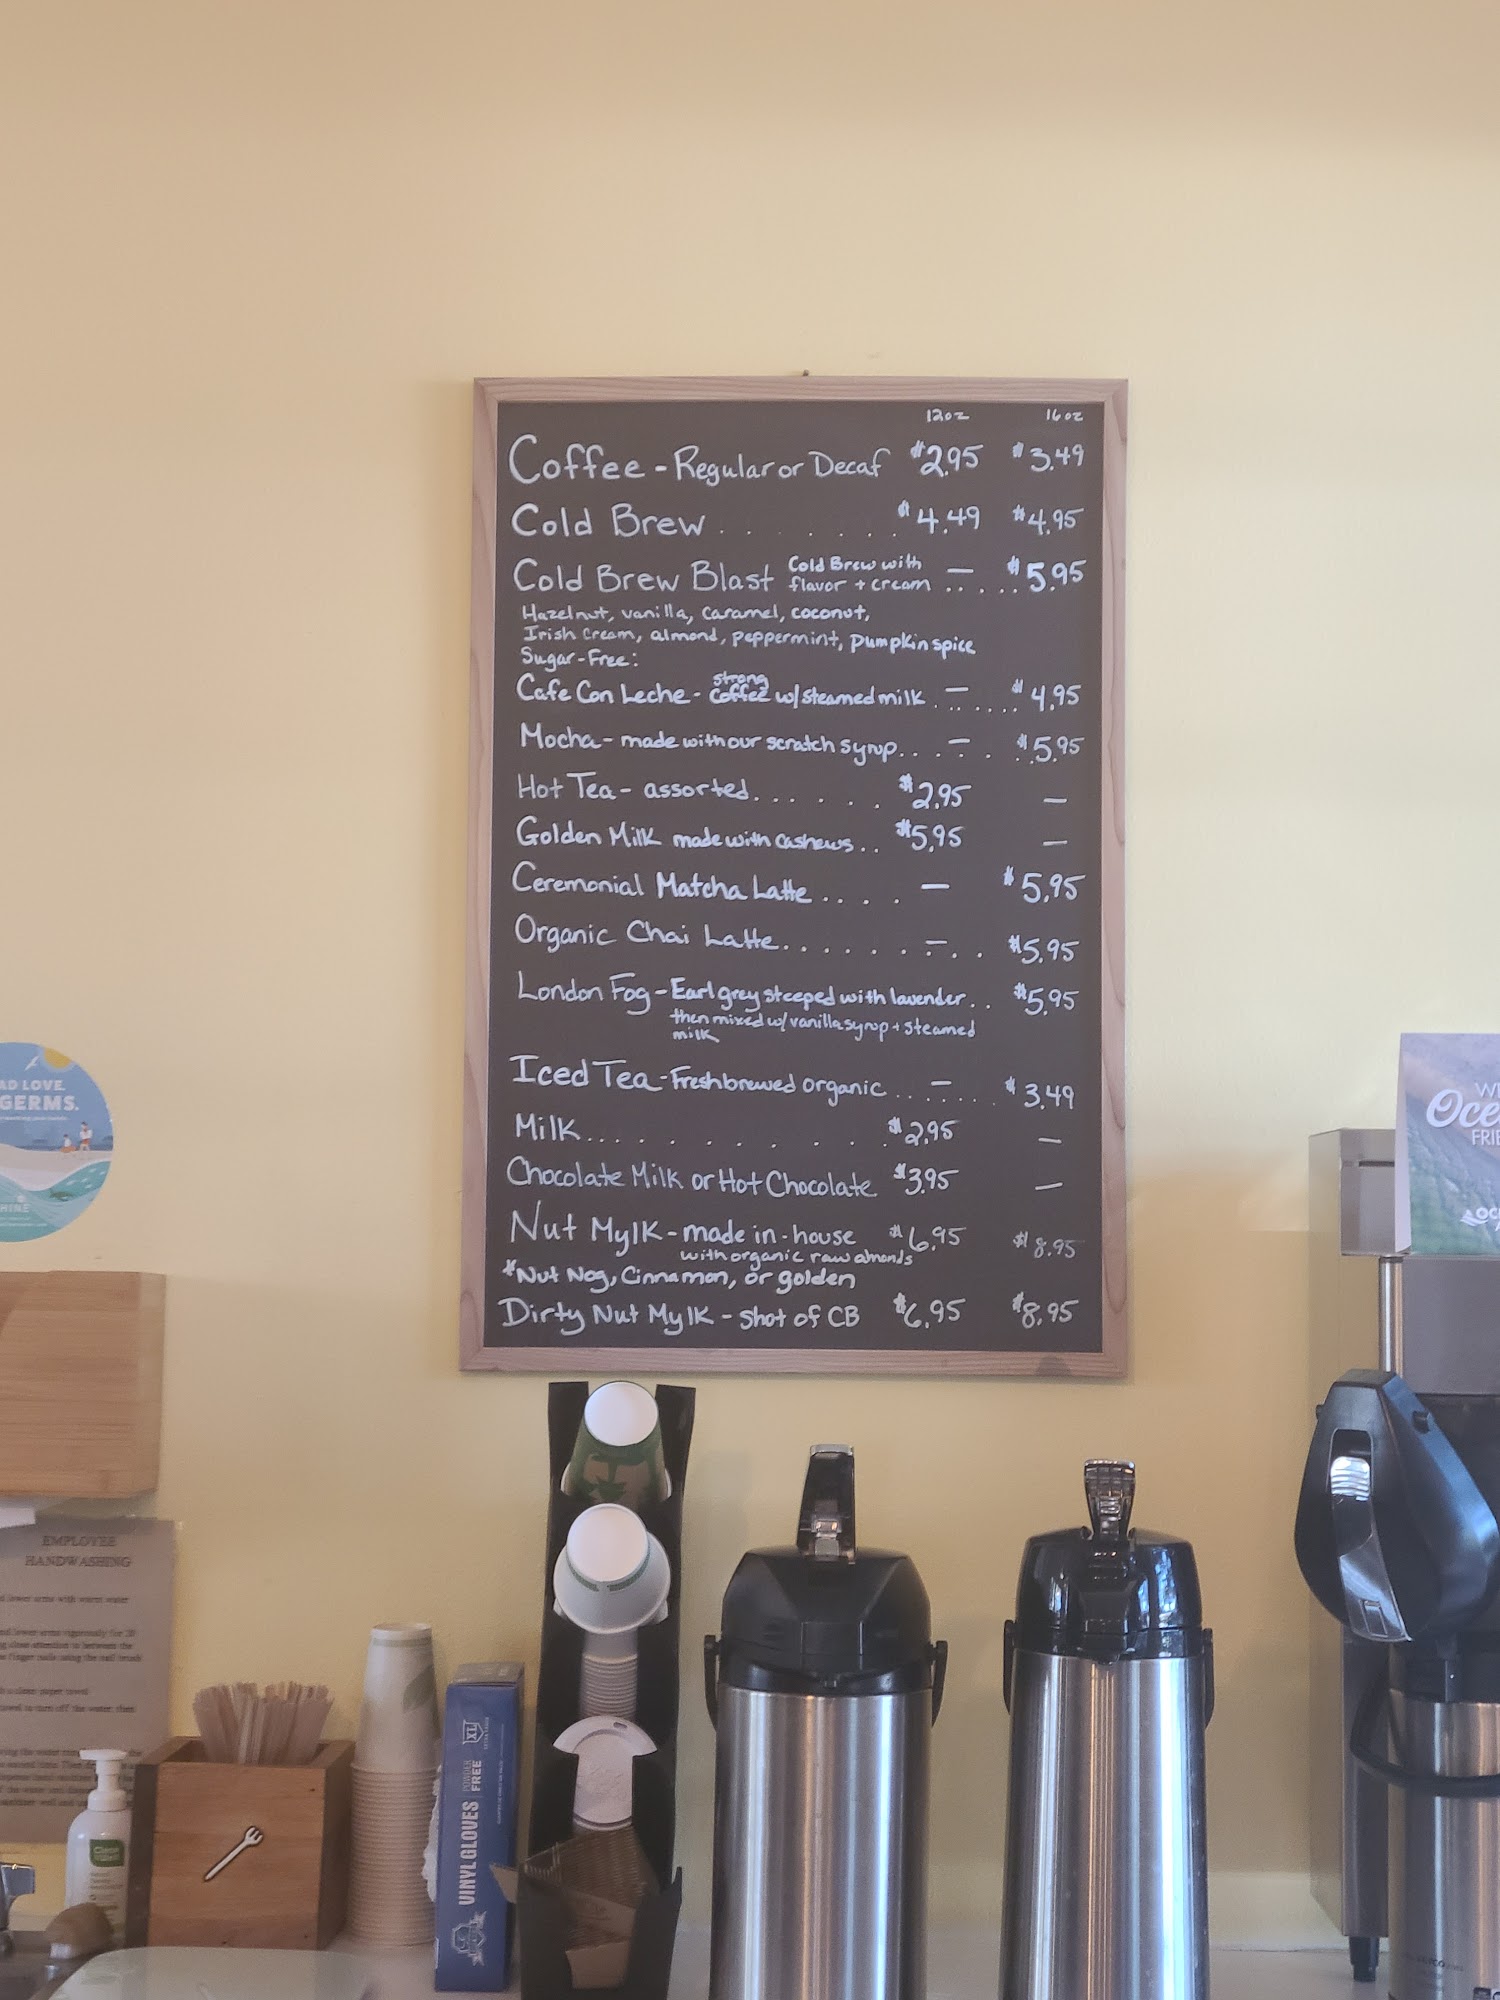 12oz 16oz
Coffee - Regular or Decaf $2.95 $3.49
Cold Brew . . . . . . . $4.49 $4.95
Cold Brew Blast Cold Brew with flavor + cream — . . . . . $5.95
Hazelnut, vanilla, caramel, coconut,
Irish Cream, almond, peppermint, pumpkin spice
Sugar-Free:
Cafe Con Leche - strong coffee w/ steamed milk . — . . . . . $4.95
Mocha - made with our scratch syrup . . — . . . $5.95
Hot Tea - assorted . . . . . . $2.95 —
Golden Milk made with cashews . . $5.95 —
Ceremonial Matcha Latte . . . . — $5.95
Organic Chai Latte . . . . . . — . . $5.95
London Fog - Earl grey steeped with lavender . . $5.95
then mixed w/ vanilla syrup + steamed
milk
Iced Tea - Fresh brewed organic — . . . . . . $3.49
Milk . . . . . . . . . . . $2.95 —
Chocolate Milk or Hot Chocolate $3.95 —
Nut Mylk - made in-house $6.95 $8.95
with organic raw almonds
*Nut Nog, Cinnamon, or golden
Dirty Nut Mylk - shot of CB $6.95 $8.95
AD LOVE,
GERMS.
HINE
EMPLOYEE
HANDWASHING
VINYL GLOVES
POWDER FREE
XL